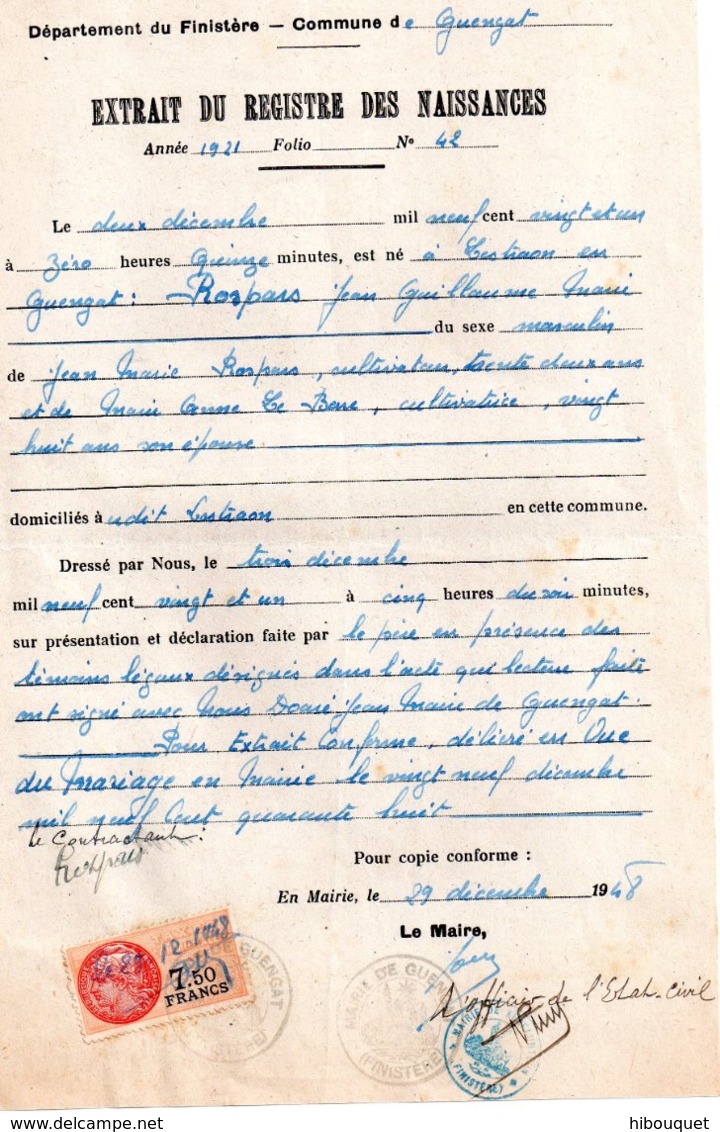 Département du Finistère — Commune de Guengat
EXTRAIT DU REGISTRE DES NAISSANCES
Année 1921 Folio Nº 42
Le deux décembre mil neuf cent vingt et un
à Zéro heures Quinze minutes, est né à Lestraon en
Guengat : Rospars Jean Guillaume Marie
du sexe masculin
de Jean Marie Rospars, cultivateur, trente deux ans
et de Marie Anne Le Berre, cultivatrice, vingt
huit ans son épouse
domiciliés à udit Lestraon en cette commune.
Dressé par Nous, le trois décembre
mil neuf cent vingt et un à cinq heures du soir minutes,
sur présentation et déclaration faite par le père en présence des
témoins légaux désignés dans l'acte qui lecture faite
ont signé avec Nous Doaré Jean Maire de Guengat.
Pour Extrait Conforme, délivré en Vue
du Mariage en Mairie le vingt neuf décembre
mil neuf Cent quarante huit
le Contractant :
Rospars
Pour copie conforme :
En Mairie, le 29 décembre 1948
Le Maire,
L'officier de l'Etat-civil
Le 29 12.1948
7.50
FRANCS
GUENGAT
MAIRIE DE GUENGAT
(FINISTÈRE)
MAIRIE DE
(FINISTÈRE)
hibouquet